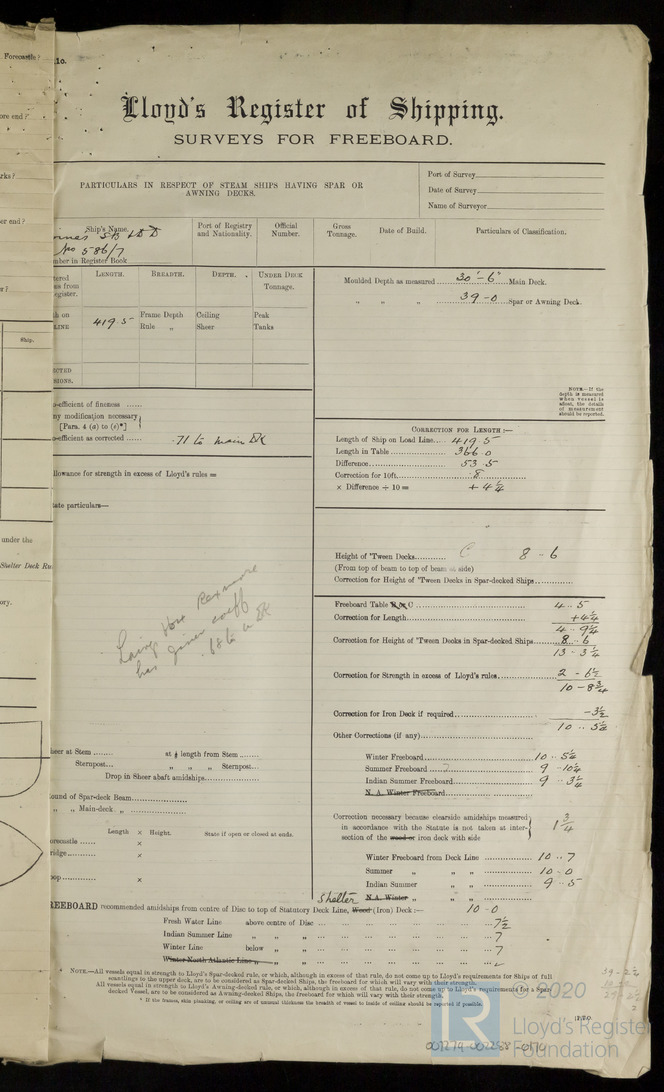 Forecastle?
10.
Lloyd's Register of Shipping.
SURVEYS FOR FREEBOARD.
PARTICULARS IN RESPECT OF STEAM SHIPS HAVING SPAR OR
AWNING DECKS.
Port of Survey
Date of Survey
Name of Surveyor
Ship's Name.
No 586/7
Number in Register Book
Port of Registry
and Nationality.
Official
Number.
Gross
Tonnage.
Date of Build.
Particulars of Classification.
LENGTH.
BREADTH.
DEPTH.
UNDER DECK
Tonnage.
419.5
Frame Depth
Rule "
Ceiling
Sheer
Peak
Tanks
Moulded Depth as measured 30'-6" Main Deck.
" " " 39-0 Spar or Awning Deck.
NOTE.—If the
depth is measured
when vessel is
afloat, the details
of measurement
should be reported.
Co-efficient of fineness
Any modification necessary
[Para. 4 (a) to (e)*]
Co-efficient as corrected .71 to main DK
Allowance for strength in excess of Lloyd's rules =
State particulars—
CORRECTION FOR LENGTH:—
Length of Ship on Load Line 419.5
Length in Table 366.0
Difference 53.5
Correction for 10ft. .8
× Difference ÷ 10 = + 4¼
Height of 'Tween Decks C 8 .. 6
(From top of beam to top of beam at side)
Correction for Height of 'Tween Decks in Spar-decked Ships
Freeboard Table B or C 4 .. 5
Correction for Length + 4¼
4 .. 9¼
Correction for Height of 'Tween Decks in Spar-decked Ships 8 .. 6
13 - 3¼
Correction for Strength in excess of Lloyd's rules 2 - 6½
10 - 8¾
Correction for Iron Deck if required - 3½
10 .. 5¼
Other Corrections (if any)
Laing
has given coeff
.68 to u DK
Winter Freeboard 10 .. 5¼
Summer Freeboard 9 .. 10¼
Indian Summer Freeboard 9 .. 3¼
N. A. Winter Freeboard
Correction necessary because clearside amidships measured
in accordance with the Statute is not taken at inter-
section of the wood or iron deck with side
1¾
Winter Freeboard from Deck Line 10 .. 7
Summer " " 10 - 0
Indian Summer " " 9 .. 5
N.A. Winter " "
Sheer at Stem
at ⅛ length from Stem
Sternpost
" " " Sternpost
Drop in Sheer abaft amidships
Round of Spar-deck Beam
" " Main-deck "
Length × Height.
State if open or closed at ends.
Forecastle ×
Bridge ×
Poop ×
Shelter
FREEBOARD recommended amidships from centre of Disc to top of Statutory Deck Line, Wood (Iron) Deck:— 10 - 0
Fresh Water Line above centre of Disc 7½
Indian Summer Line " " " 7
Winter Line below " " 7
Winter North Atlantic Line " "
NOTE.—All vessels equal in strength to Lloyd's Spar-decked rule, or which, although in excess of that rule, do not come up to Lloyd's requirements for Ships of full
scantlings to the upper deck, are to be considered as Spar-decked Ships, the freeboard for which will vary with their strength.
All vessels equal in strength to Lloyd's Awning-decked rule, or which, although in excess of that rule, do not come up to Lloyd's requirements for a Spar-
decked Vessel, are to be considered as Awning-decked Ships, the freeboard for which will vary with their strength.
* If the frames, skin planking, or ceiling are of unusual thickness the breadth of vessel to inside of ceiling should be reported if possible.
under the
Shelter Deck
LR
© 2020
Lloyd's Register
Foundation